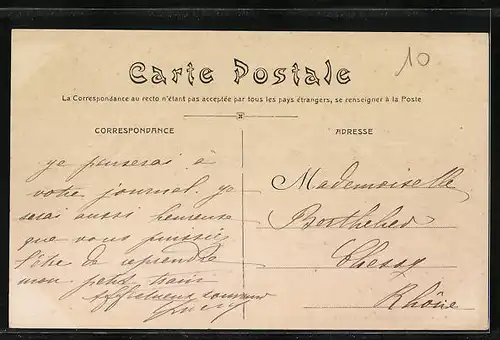 10
Carte Postale
La Correspondance au recto n'étant pas acceptée par tous les pays étrangers, se renseigner à la Poste
CORRESPONDANCE
ADRESSE
je penserai à
votre journal. je
serai aussi heureuse
que vous puissiez
l'être de reprendre
mon petit train
Affectueux souvenir
Mademoiselle
Berthelier
Chessy
Rhône